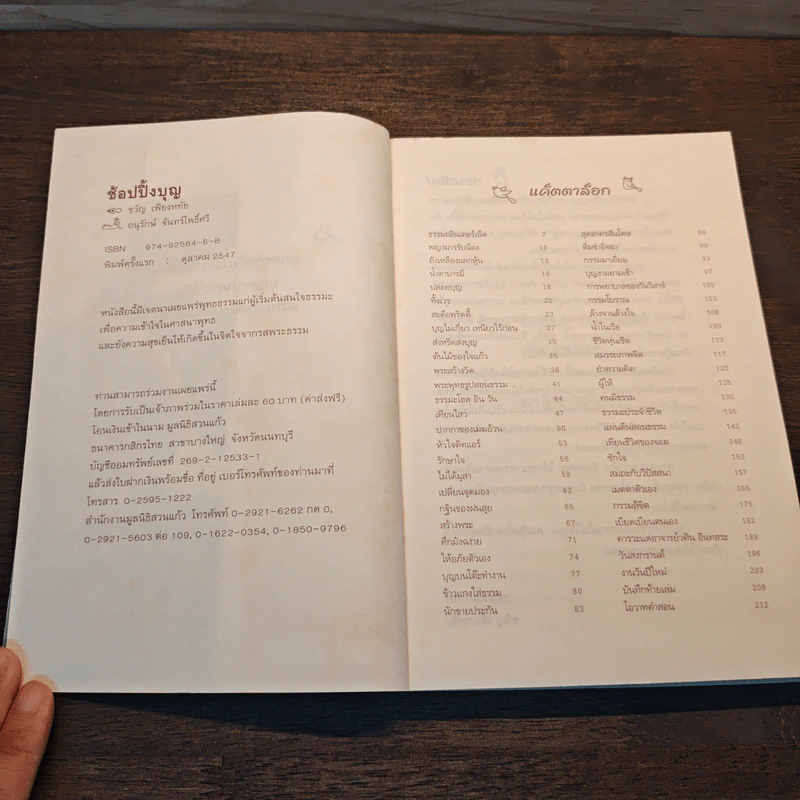 ช้อปปิ้งบุญ
ขวัญ เพียงหทัย
อนุรักษ์ จันทร์โพธิ์ศรี
ISBN 974-92564-6-8
พิมพ์ครั้งแรก : ตุลาคม 2547
หนังสือนี้มีเจตนาเผยแพร่พุทธธรรมแก่ผู้เริ่มต้นสนใจธรรมะ
เพื่อความเข้าใจในศาสนาพุทธ
และยังความสุขเย็นให้เกิดขึ้นในจิตใจจากรสพระธรรม
ท่านสามารถร่วมงานเผยแพร่นี้
โดยการรับเป็นเจ้าภาพร่วมในราคาเล่มละ 60 บาท (ค่าส่งฟรี)
โอนเงินเข้าในนาม มูลนิธิสวนแก้ว
ธนาคารกสิกรไทย สาขาบางใหญ่ จังหวัดนนทบุรี
บัญชีออมทรัพย์เลขที่ 269-2-12533-1
แล้วส่งใบฝากเงินพร้อมชื่อ ที่อยู่ เบอร์โทรศัพท์ของท่านมาที่
โทรสาร 0-2595-1222
สำนักงานมูลนิธิสวนแก้ว โทรศัพท์ 0-2921-6262 กด 0,
0-2921-5603 ต่อ 109, 0-1622-0354, 0-1850-9796
แค็ตตาล็อก
ธรรมะอินเตอร์เน็ต 7
พญามารรับน้อง 10
ถังเหลืองแลกหุ้น 13
น้ำตาบารมี 16
ปล่อยบุญ 18
ทิ้งเวร 20
สะดือพริตตี้ 23
บุญไม่เกี่ยว เหนียวไว้ก่อน 27
ส่งหวีดส่งบุญ 30
ต้นไม้ของใจแก้ว 36
พระสร้างวัด 38
พระพุทธรูปสอนธรรม 41
ธรรมะโฮล อิน วัน 44
เทียนไสว 47
ปากกาของเม่นอ้วน 50
หัวใจติดแอร์ 53
รักษาใจ 56
ไม่ได้มุสา 59
เปลี่ยนจุดมอง 62
กฐินของฝนสุย 65
สร้างพระ 67
ศึกมังฉงาย 71
ให้อภัยตัวเอง 74
บุญบนโต๊ะทำงาน 77
ข้าวแกงใส่ธรรม 80
นักขายประกัน 83
สุดสาครสันโดษ 86
ติ่มซำอิจฉา 89
กรรมมาเยี่ยม 93
บุญงามยามเช้า 97
การพยาบาลของวันวิสาข์ 100
กรรมโบราณ 103
ล้างจานล้างใจ 106
น้ำในเรือ 109
ชีวิตหุ่นเชิด 113
สมรรถภาพจิต 117
ยำความคิด 123
ผู้ให้ 125
คนมีธรรม 130
ธรรมะประจำชีวิต 136
แผ่นดินสอนธรรม 142
เทียนชีวิตของจอม 146
ซักใจ 153
สมถะกับวิปัสสนา 157
เมตตาตัวเอง 165
กรรมลิขิต 175
เบียดเบียนตนเอง 182
คารวะแด่อาจารย์วศิน อินทสระ 189
วันสงกรานต์ 196
งานวันปีใหม่ 203
บันทึกท้ายเล่ม 208
โอวาทคำสอน 212